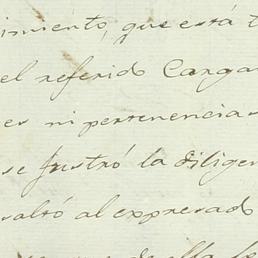 imiento, que está t
el referido Carga
es ni pertenencias
se frustró la diligen
saltó al expresado